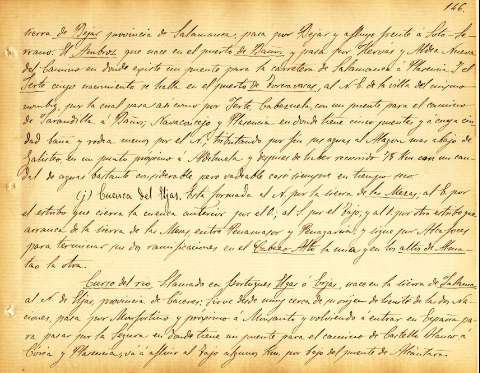 146.
sierra de Bejar provincia de Salamanca, pasa por Bejar y afluye frente á Soto-Se-
rrano. El Ambroz que nace en el puerto de Baños y pasa por Hervas y Aldea Nueva
del Camino en donde existe un puente para la carretera de Salamanca á Plasencia. Y el
Jerte cuyo nacimiento se halla en el puerto de Tornavacas, al N. E. de la villa del mismo
nombre, por la cual pasa asi como por Jerte Cabezuela, con un puente para el camino
de Jarandilla á Baños; Navaconcejo y Plasencia en donde tiene cinco puentes y á cuya ciu-
dad baña y rodea menos por el N.; tributando por fin sus aguas al Alagon mas abajo de
Galisteo en un punto proximo á Aldehuela y despues de haber recorrido 75 Km con un cau-
dal de aguas bastante considerable pero vadeable casi siempre en tiempo seco.
(j) Cuenca del Eljas. Esta formada al N. por la sierra de las Mesas, al E. por
el estribo que cierra la cuenca anterior por el O; al S. por el Tajo, y al O. por otro estribo que
arranca de la sierra de las Mesas, entre Penamacor y Penagarcia y sigue por
para terminar sus dos ramificaciones en el Cabezo Alto la una y en los altos de
la otra.
Curso del rio, llamado en portugues Eljas ó Erjas, nace en la sierra de Jalama,
al N. de Eljas provincia de Caceres; sirve desde muy cerca de su origen de limite de las dos Na-
ciones, pasa por Monfortino y proximo á Monsanto y volviendo á entrar en España pa-
ra pasar por la Segura en donde tiene un puente para el camino de Castello Blanco á
Coria y Plasencia, va á afluir al Tajo algunos Km. por bajo del puente de Alcántara.